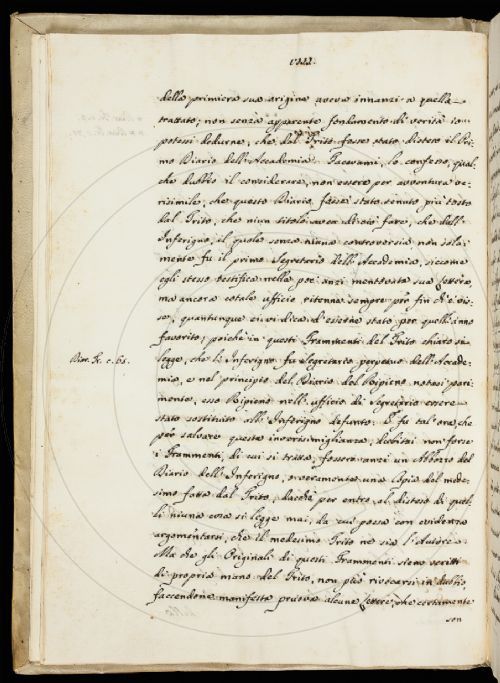 VIII.
della primiera sua origine aveva innanzi a quella
trattato; non senza apparente fondamento di verità io
potessi dedurne, che dal Trito fosse stato disteso il Pri-
mo Diario dell'Accademia. Facevami, lo confesso, qual-
che dubbio il considerare, non essere per avventura ve-
risimile, che questo Diario fosse stato tenuto più tosto
dal Trito, che niun titolo avea di ciò fare, che dall'
Inferigno, il quale senza niuna controversia non sola-
mente fu il primo Segretario dell'Accademia, siccome
egli stesso testifica nella poc'anzi mentovata sua lettera,
ma ancora cotale ufficio ritenne sempre per fin ch'ei vis-
se, quantunque ei vi dica d'esserne stato per quell'anno
favorito; poichè in questi Frammenti del Trito chiaro si
legge, che l'Inferigno fu Segretario perpetuo dell'Accade-
Diar. R. c. 61.
mia, e nel principio del Diario del Ripieno notasi pari-
mente, esso Ripieno nell'ufficio di Segretario essere
stato sostituito all'Inferigno defunto. E fu tal'ora che
per salvare questa inverisimiglianza, dubitai non forse
i Frammenti, di cui si tratta, fossero anzi un Abbozzo del
Diario dell'Inferigno, o veramente una Copia del mede-
simo fatta dal Trito, dachè per entro al disteso di quel-
li niuna cosa si legge mai, da cui possa con evidenza
argomentarsi, che il medesimo Trito ne sia l'Autore.
Ma che gli Originali di questi Frammenti sieno scritti
di propria mano del Trito, non può rivocarsi in dubbio,
faccendone manifesta pruova alcune lettere, che certamente
son